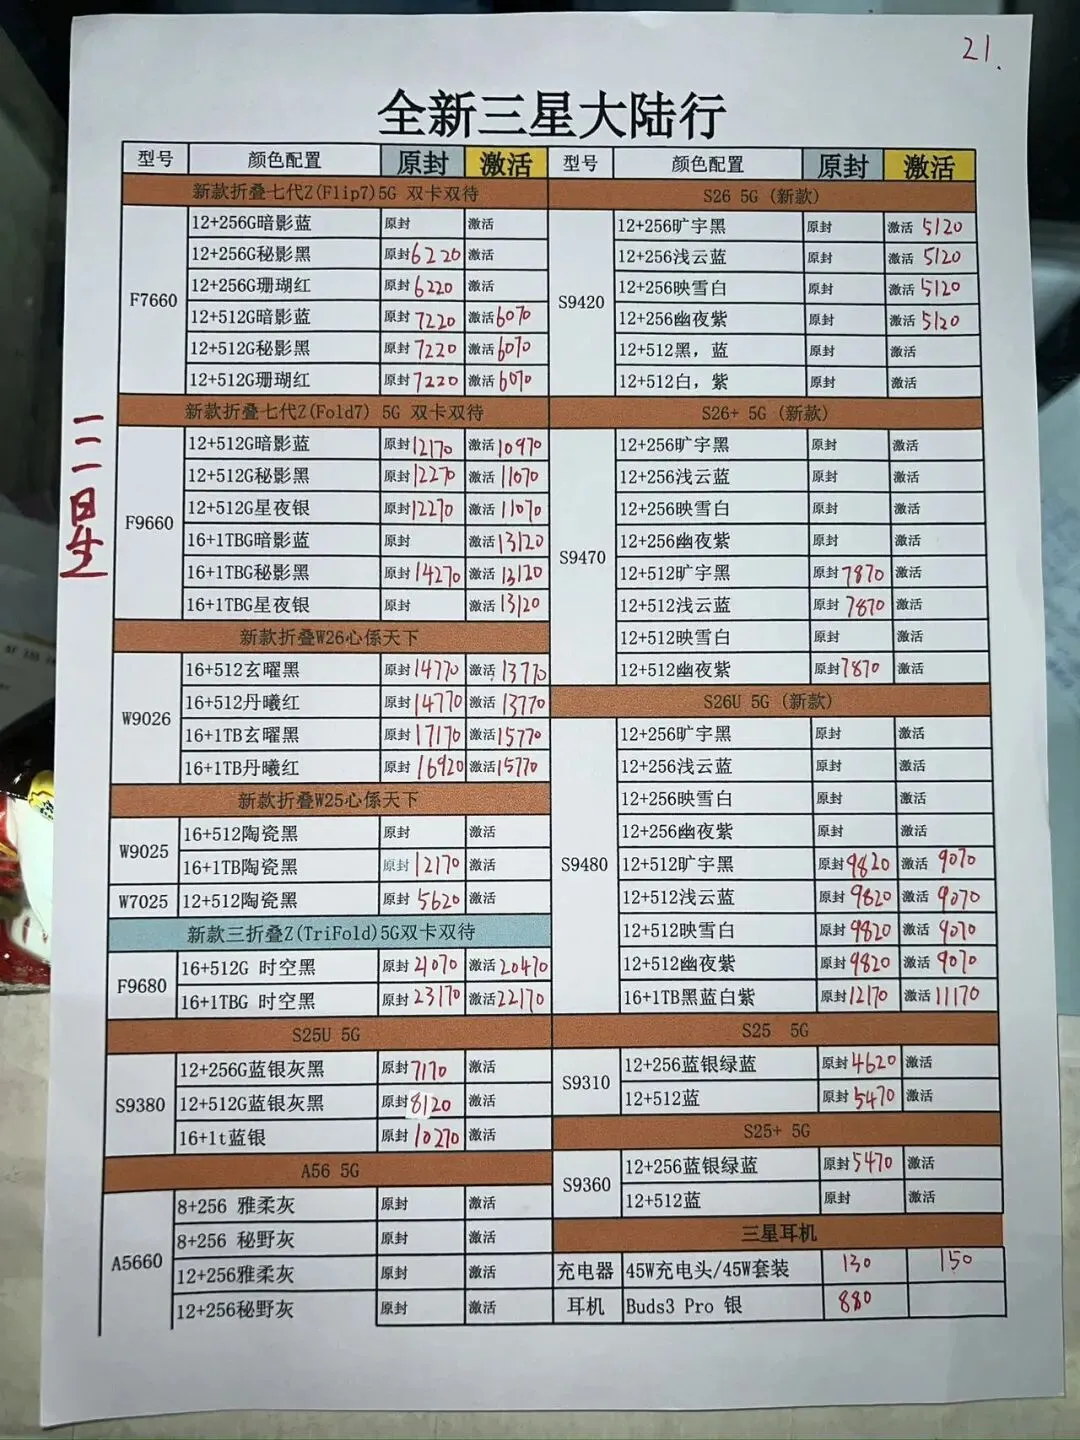 21.
全新三星大陆行
三星
型号 颜色配置 原封 激活
新款折叠七代Z(Flip7)5G 双卡双待
F7660
12+256G暗影蓝 原封 激活
12+256G秘影黑 原封6220 激活
12+256G珊瑚红 原封6220 激活
12+512G暗影蓝 原封7220 激活6070
12+512G秘影黑 原封7220 激活6070
12+512G珊瑚红 原封7220 激活6070
新款折叠七代Z(Fold7) 5G 双卡双待
F9660
12+512G暗影蓝 原封12170 激活10970
12+512G秘影黑 原封12270 激活11070
12+512G星夜银 原封12270 激活11070
16+1TBG暗影蓝 原封 激活13120
16+1TBG秘影黑 原封14270 激活13120
16+1TBG星夜银 原封 激活13120
新款折叠W26心係天下
W9026
16+512玄曜黑 原封14770 激活13770
16+512丹曦红 原封14770 激活13770
16+1TB玄曜黑 原封17170 激活15770
16+1TB丹曦红 原封16920 激活15770
新款折叠W25心係天下
W9025
16+512陶瓷黑 原封 激活
16+1TB陶瓷黑 原封12170 激活
W7025 12+512陶瓷黑 原封5620 激活
新款三折叠Z(TriFold)5G双卡双待
F9680
16+512G 时空黑 原封21070 激活20470
16+1TBG 时空黑 原封23170 激活22170
S25U 5G
S9380
12+256G蓝银灰黑 原封7170 激活
12+512G蓝银灰黑 原封8120 激活
16+1t蓝银 原封10270 激活
A56 5G
A5660
8+256 雅柔灰 原封 激活
8+256 秘野灰 原封 激活
12+256雅柔灰 原封 激活
12+256秘野灰 原封 激活
型号 颜色配置 原封 激活
S26 5G (新款)
S9420
12+256旷宇黑 原封 激活 5120
12+256浅云蓝 原封 激活 5120
12+256映雪白 原封 激活 5120
12+256幽夜紫 原封 激活 5120
12+512黑，蓝 原封 激活
12+512白，紫 原封 激活
S26+ 5G (新款)
S9470
12+256旷宇黑 原封 激活
12+256浅云蓝 原封 激活
12+256映雪白 原封 激活
12+256幽夜紫 原封 激活
12+512旷宇黑 原封7870 激活
12+512浅云蓝 原封7870 激活
12+512映雪白 原封 激活
12+512幽夜紫 原封7870 激活
S26U 5G (新款)
S9480
12+256旷宇黑 原封 激活
12+256浅云蓝 原封 激活
12+256映雪白 原封 激活
12+256幽夜紫 原封 激活
12+512旷宇黑 原封9820 激活 9070
12+512浅云蓝 原封9820 激活 9070
12+512映雪白 原封9820 激活 9070
12+512幽夜紫 原封9820 激活 9070
16+1TB黑蓝白紫 原封12170 激活11170
S25 5G
S9310
12+256蓝银绿蓝 原封4620 激活
12+512蓝 原封5470 激活
S25+ 5G
S9360
12+256蓝银绿蓝 原封5470 激活
12+512蓝 原封 激活
三星耳机
充电器 45W充电头/45W套装 130 150
耳机 Buds3 Pro 银 880